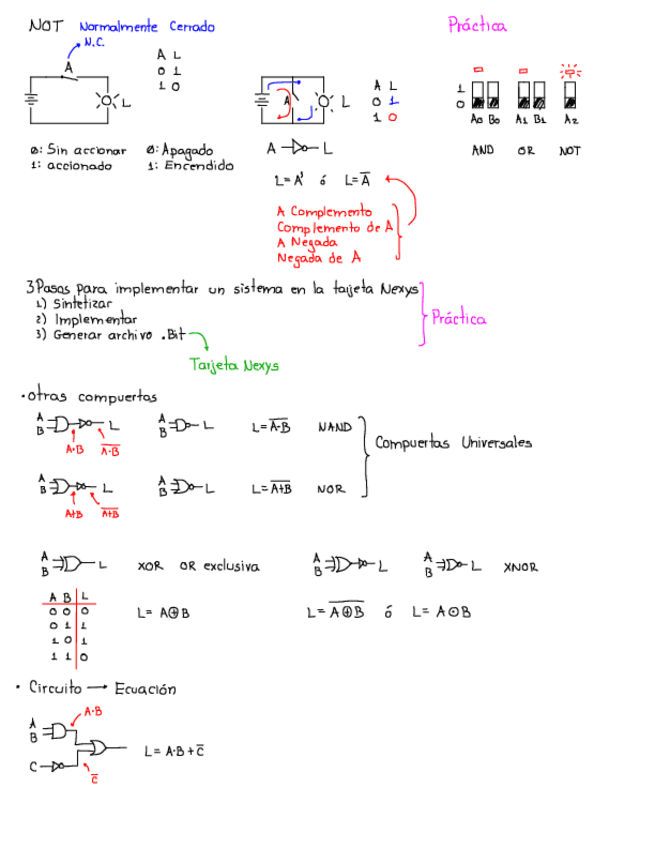 NOT Normalmente Cerrado
N.C.
A
L
A L
0 1
1 0
0: Sin accionar 0: Apagado
1: accionado 1: Encendido
A
L
A L
0 1
1 0
A L
L=A' ó L=A̅
A Complemento
Complemento de A
A Negada
Negada de A
Práctica
1
0
A0 B0 A1 B1 A2
AND OR NOT
3 Pasos para implementar un sistema en la tarjeta Nexys
1) Sintetizar
2) Implementar
3) Generar archivo .Bit
Práctica
Tarjeta Nexys
• otras compuertas
A
B
L
A·B A̅·̅B̅
A
B
L
L=A̅·̅B̅ NAND
A
B
L
A+B A̅+̅B̅
A
B
L
L=A̅+̅B̅ NOR
Compuertas Universales
A
B
L
XOR OR exclusiva
A B L
0 0 0
0 1 1
1 0 1
1 1 0
L= A⊕B
A
B
L
A
B
L
XNOR
L= A̅⊕̅B̅ ó L= A⊙B
• Circuito → Ecuación
A
B
A·B
C
C̅
L= A·B+C̅